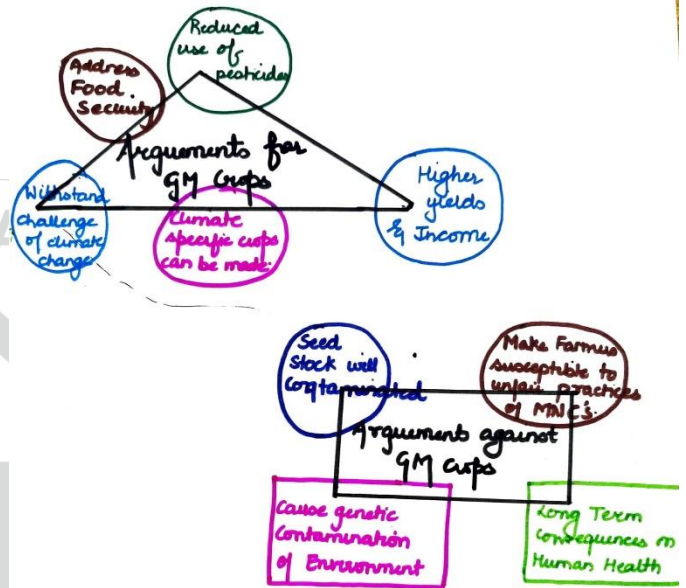 Reduced
use of
pesticides
Address
Food
Security
Arguements for
GM Crops
Withstand
challenge
of climate
change
Climate
specific crops
can be made.
Higher
yields
& Income
Seed
Stock will
contaminated
Make Farmers
susceptible to
unfair practices
of MNC's.
Arguements against
GM crops
Cause genetic
Contamination
of Environment
Long Term
Consequences on
Human Health